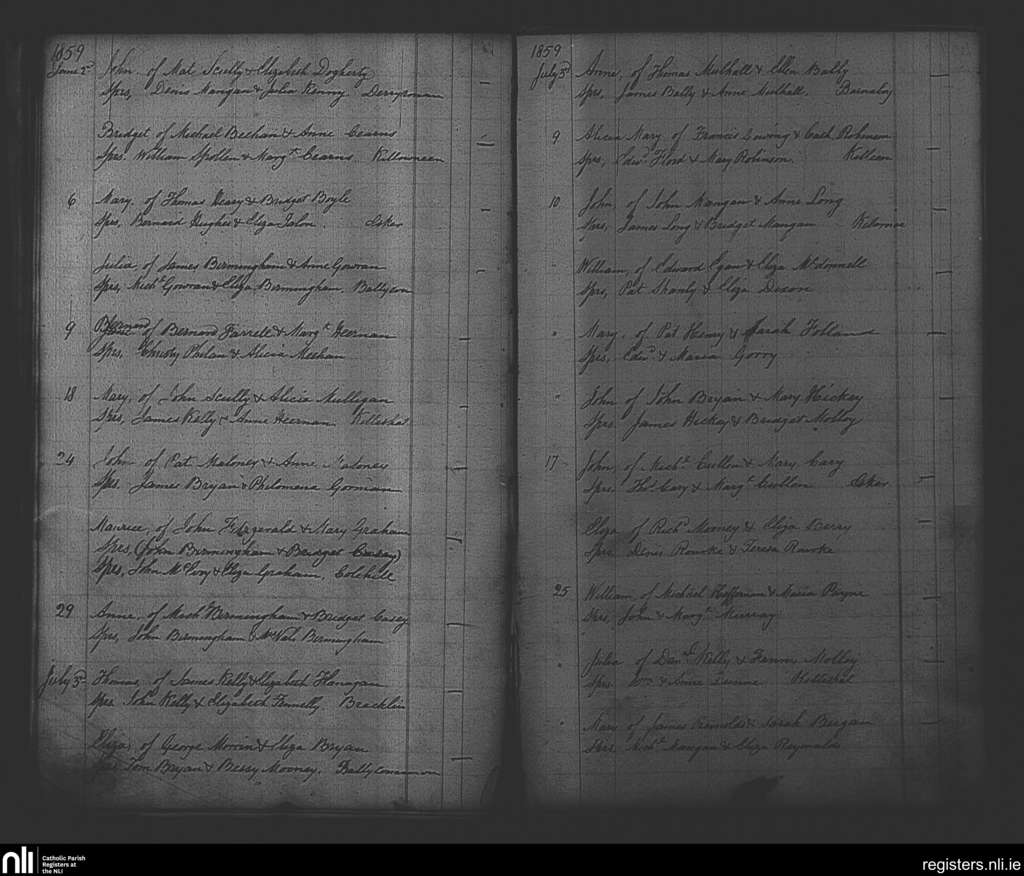 1859
June 2d John, of Mat Scully & Elizabeth Dogherty
Sprs, Denis Mangan & Julia Kenny
Bridget of Michael Beehan & Anne Cearns
Sprs. William Spollen & Margt. Cearns Killowneen
6 Mary, of Thomas Heary & Bridget Boyle
Sprs, Bernard Hughes & Eliza Esker
Julia, of James Birmingham & Anne Gowran
Sprs, Michl. Gowran & Eliza Birmingham. Ballycon
9 Bernard of Bernard Farrell & Margt. Heernan
Sprs, Christy Phelan & Alicia Meehan
18 Mary, of John Scully & Alicia Mulligan
Sprs, James Kelly & Anne Heernan Killeshal
24 John of Pat Maloney & Anne Maloney
Sprs. James Bryan & Philomena Gorman
Maurice, of John Fitzgerald & Mary Graham
Sprs, (John Birmingham & Bridget Casey)
Sprs, John McEvoy & Eliza Graham, Colehill
29 Anne, of Michl. Birmingham & Bridget Casey
Sprs, John Birmingham & Birmingham
July 3d Thomas, of James Kelly & Elizabeth Flanagan
Sprs John Kelly & Elizabeth Fennelly, Bracklin
Eliza, of George Morrin & Eliza Bryan
Sprs Tom Bryan & Bessy Mooney, Ballycommon
1859
July 3d Anne, of Thomas Mulhall & Ellen Bally
Sprs, James Bally & Anne Mulhall, Barnaboy
9 Alicia Mary of Francis & Cath. Robinson
Sprs, Edwd. Flood & Mary Robinson. Killeen
10 John, of John Mangan & Anne Long
Sprs, James Long & Bridget Mangan
" William, of Edward Egan & Eliza McDonnell
Sprs, Pat Shanly & Eliza Dixon
" Mary, of Pat Henry & Sarah Holland
Sprs, Edwd. & Maria Gorry
" John of John Bryan & Mary Hickey
Sprs. James Hickey & Bridget Molloy
17 John, of Michl. Cullen & Mary Cary
Sprs. Thos. Cary & Margt. Cullen Esker
Eliza of Richd. Mooney & Eliza Berry
Sprs Denis Rourke & Teresa Rourke
25 William, of Michael Heffernan & Maria Payne
Sprs, John & Margt. Murray
" Julia of Danl. Kelly & Fanny Molloy
Sprs. Wm. & Anne Dunne Killeshal
" Mary of James Reynolds & Sarah Bergan
Sprs, Michl. Mangan & Eliza Reynolds
nli
Catholic Parish
Registers at
the NLI
registers.nli.ie